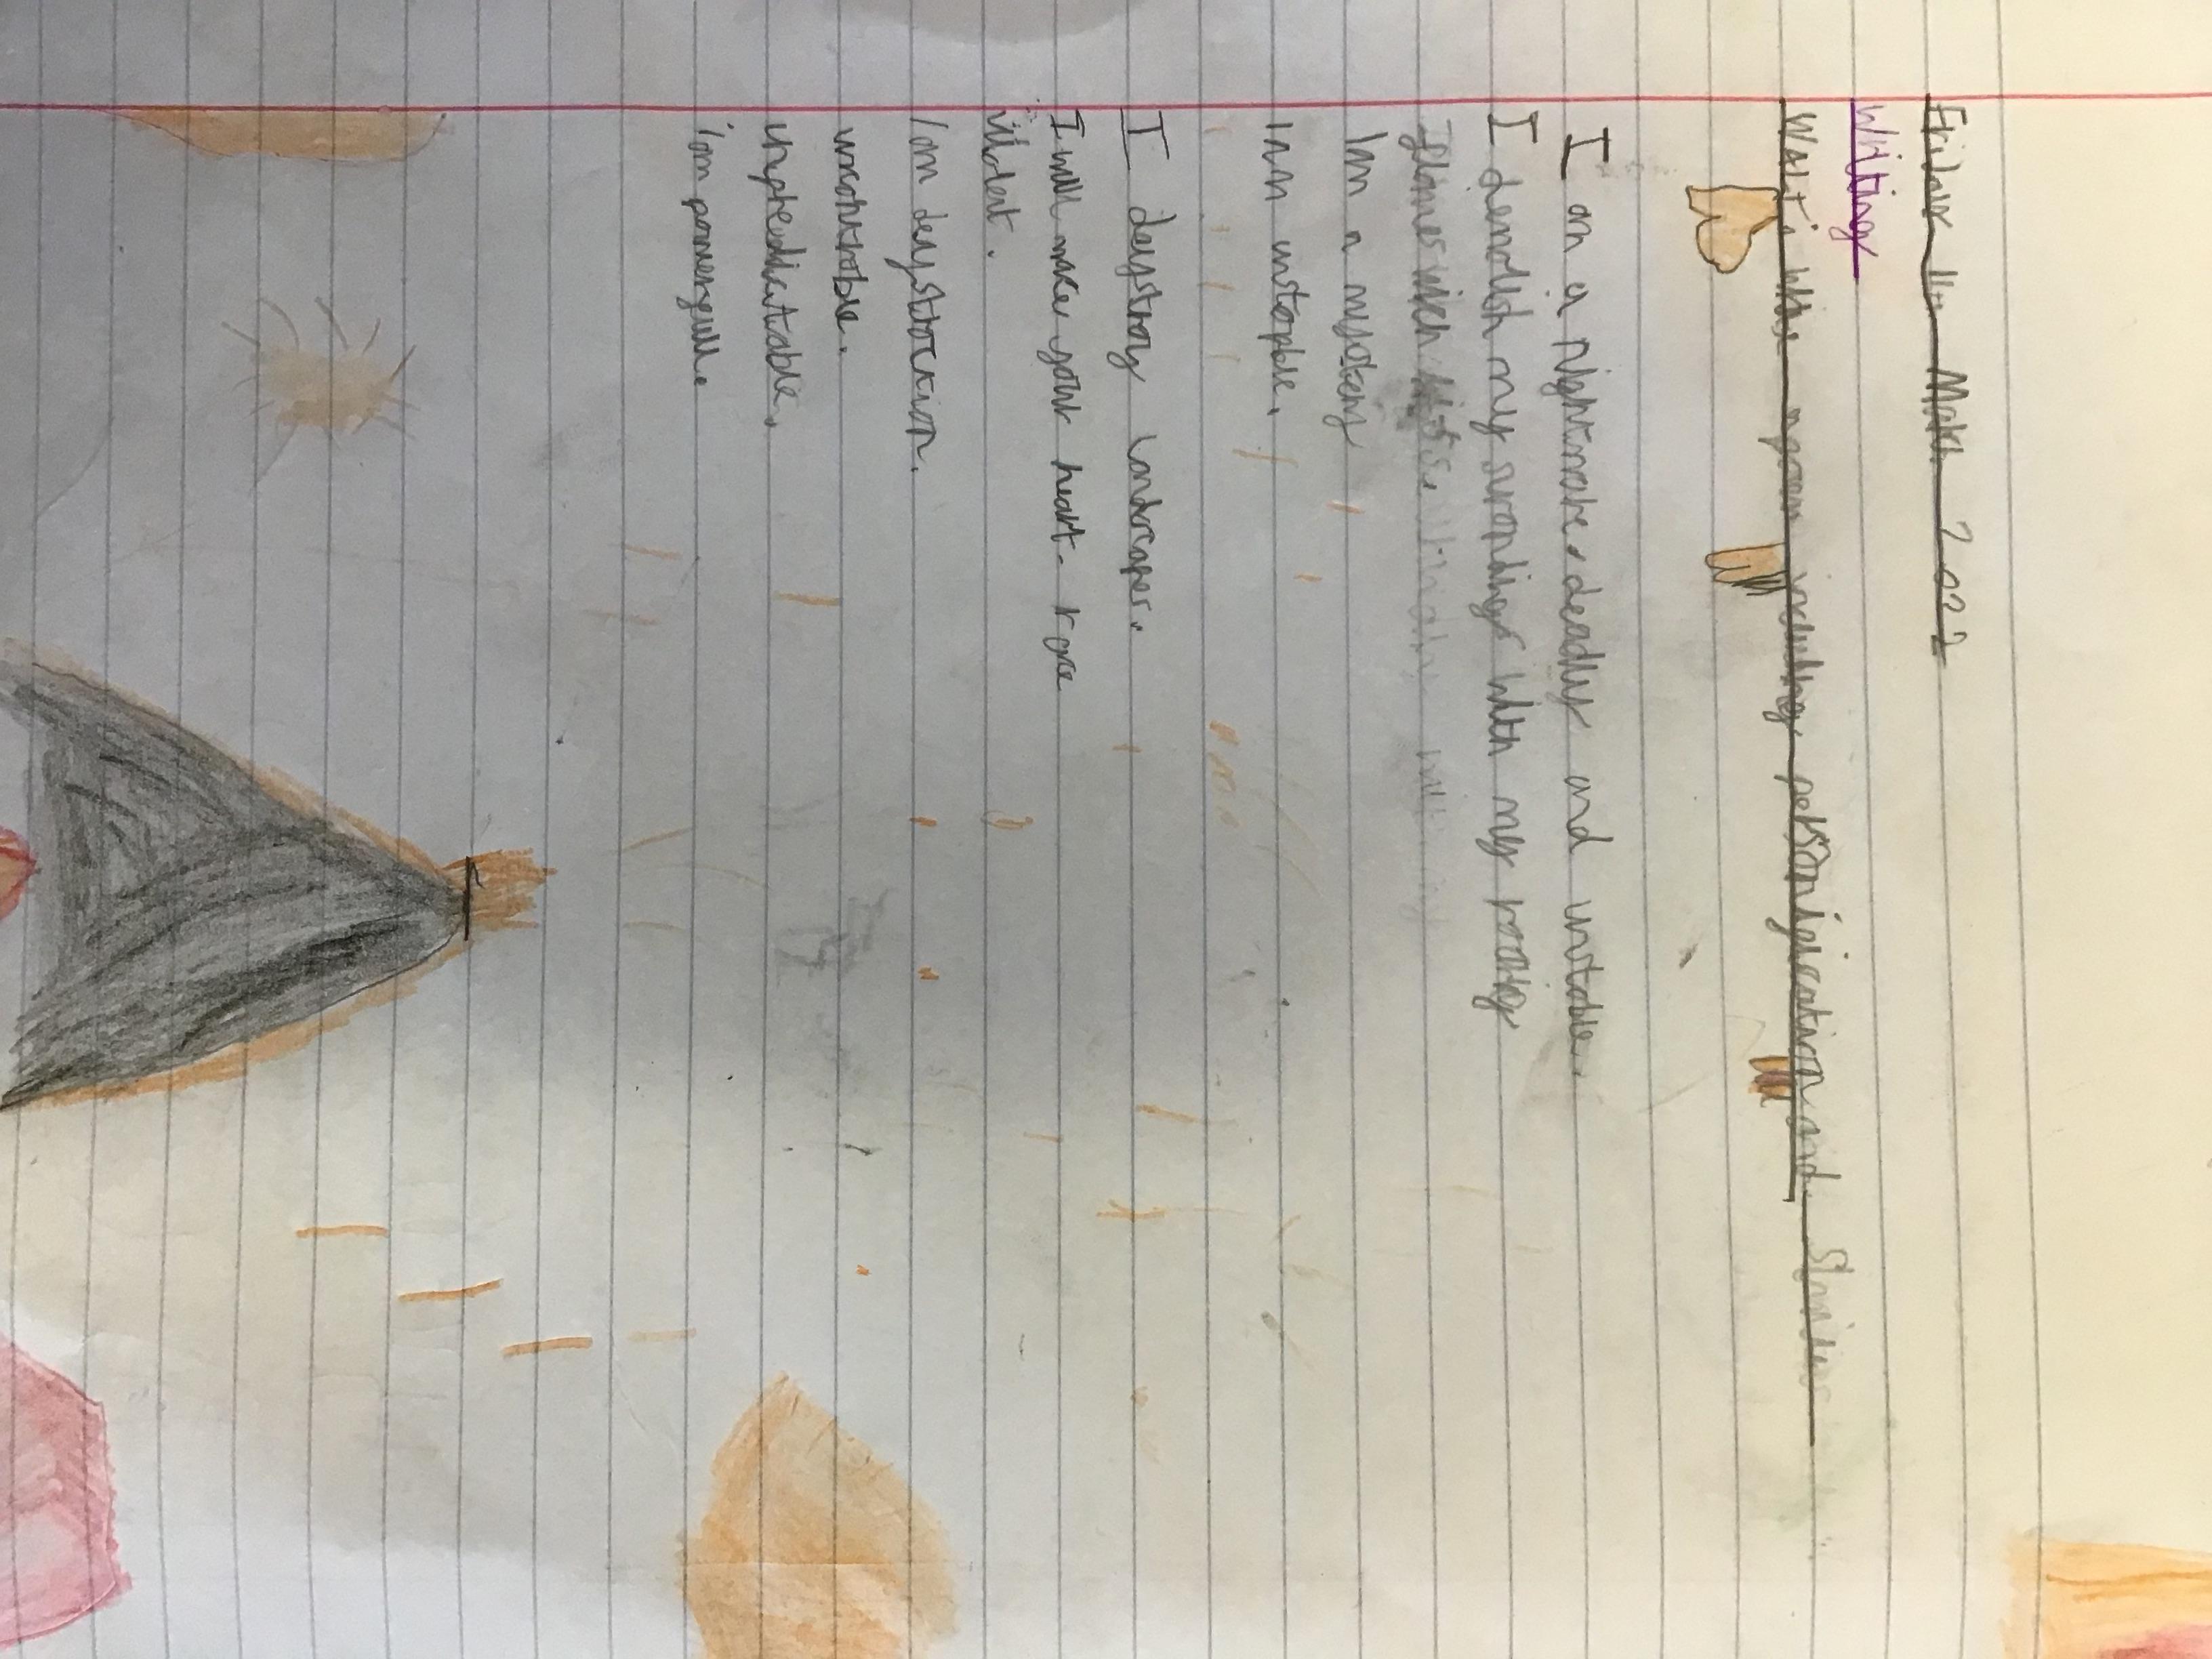 Friday 11th March 2022
Writing
Walt: write a poem including personification and Similes
I am a nightmare, deadly and unstable.
I demolish my surondings with my roaring
flames which
I am a mystery
I am unstopble.
I deystroy landscapes.
I will make your heart race
vilolent.
I am deystroction.
uncontrolable.
unpredicitable.
I am powerfull.